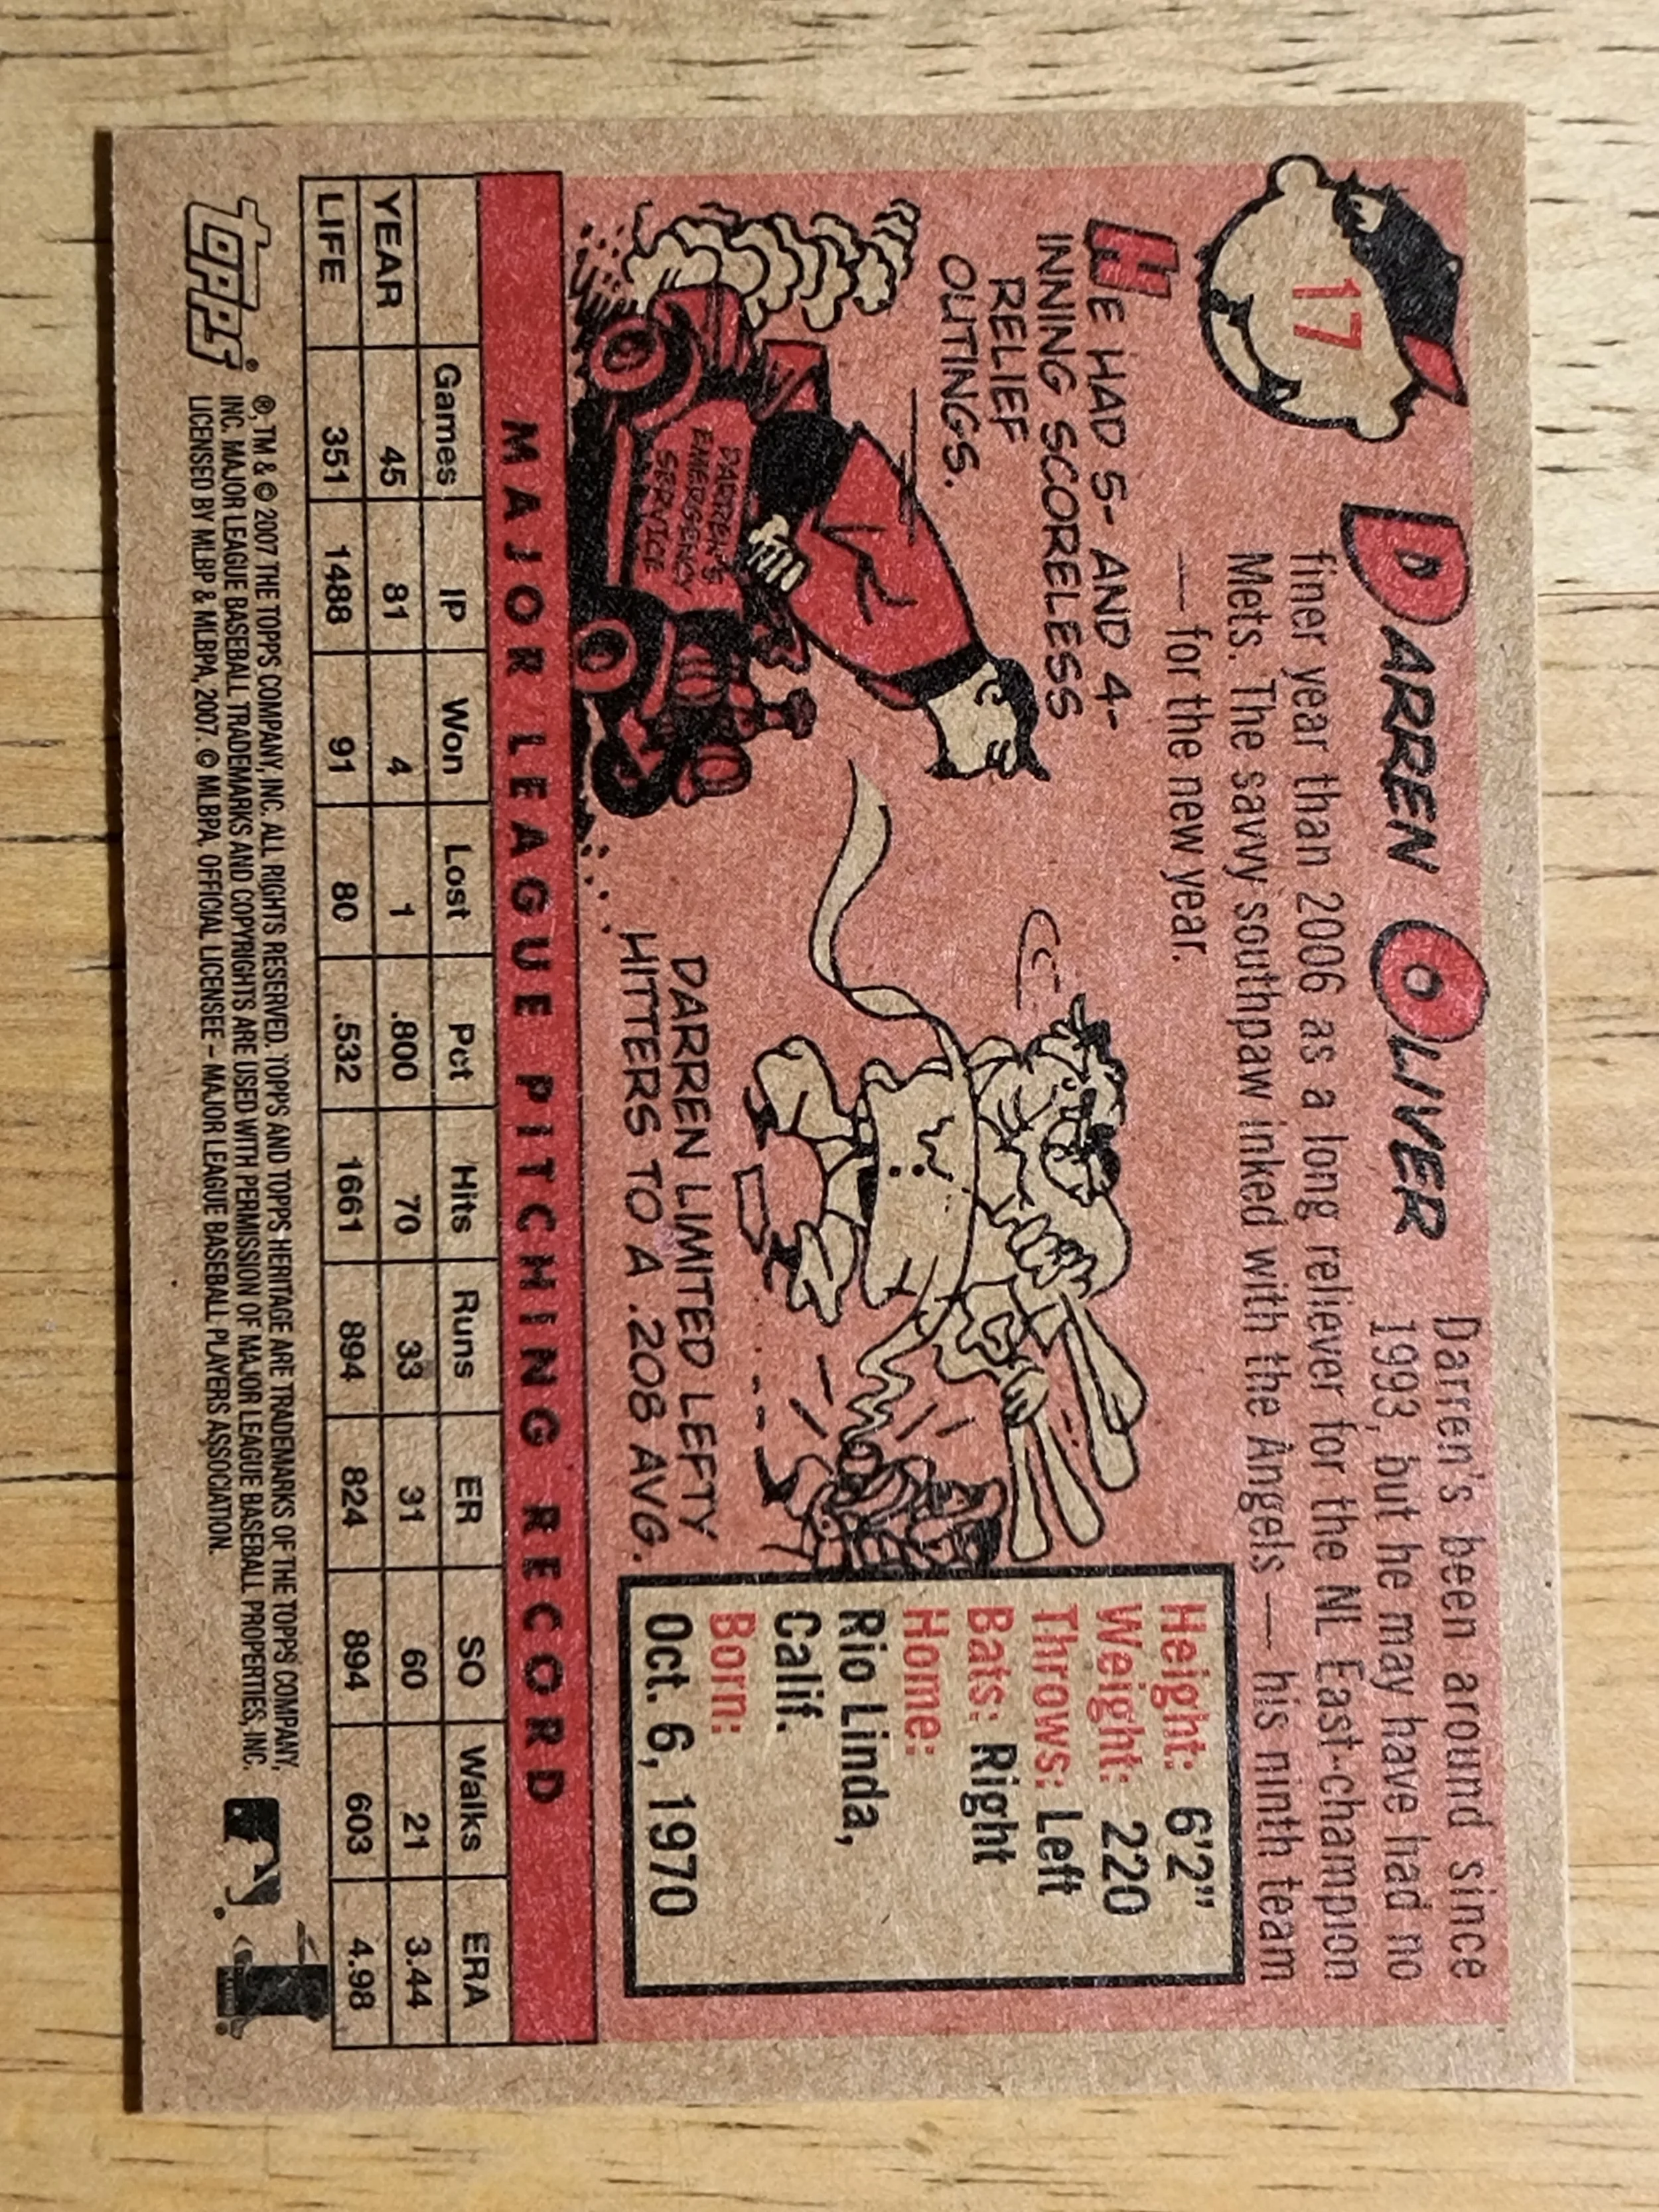 17
DARREN OLIVER
Darren's been around since
1993, but he may have had no
finer year than 2006 as a long reliever for the NL East-champion
Mets. The savvy southpaw inked with the Angels — his ninth team
— for the new year.
HE HAD 5- AND 4-
INNING SCORELESS
RELIEF
OUTINGS.
DARREN'S
EMERGENCY
SERVICE
DARREN LIMITED LEFTY
HITTERS TO A .208 AVG.
Height: 6'2"
Weight: 220
Throws: Left
Bats: Right
Home:
Rio Linda,
Calif.
Born:
Oct. 6, 1970
MAJOR LEAGUE PITCHING RECORD
Games IP Won Lost Pct Hits Runs ER SO Walks ERA
YEAR 45 81 4 1 .800 70 33 31 60 21 3.44
LIFE 351 1488 91 80 .532 1661 894 824 894 603 4.98
topps®
®, TM & © 2007 THE TOPPS COMPANY, INC. ALL RIGHTS RESERVED. TOPPS AND TOPPS HERITAGE ARE TRADEMARKS OF THE TOPPS COMPANY,
INC. MAJOR LEAGUE BASEBALL TRADEMARKS AND COPYRIGHTS ARE USED WITH PERMISSION OF MAJOR LEAGUE BASEBALL PROPERTIES, INC.
LICENSED BY MLBP & MLBPA, 2007. © MLBPA, OFFICIAL LICENSEE – MAJOR LEAGUE BASEBALL PLAYERS ASSOCIATION.